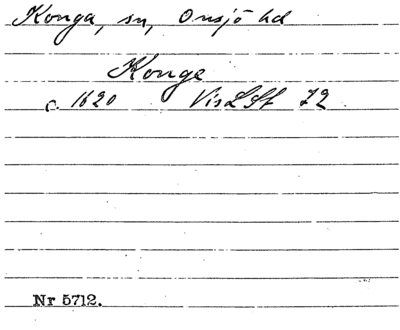 Konga, sn, Onsjö hd
Konge
c. 1620 VisLSk 72
Nr 5712.